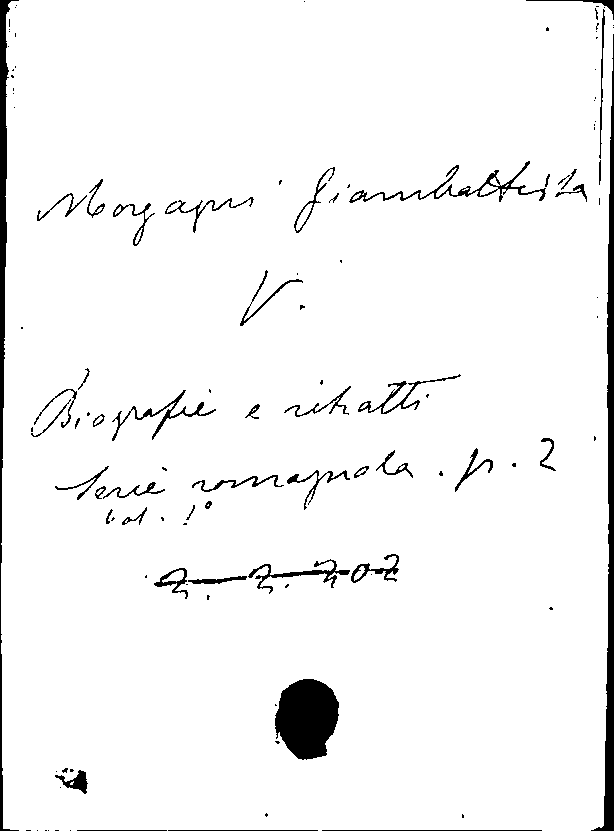 Morgagni Giambattista
V.
Biografie e ritratti
Serie romagnola. p. 2
Vol. 1º
2. 2. 202